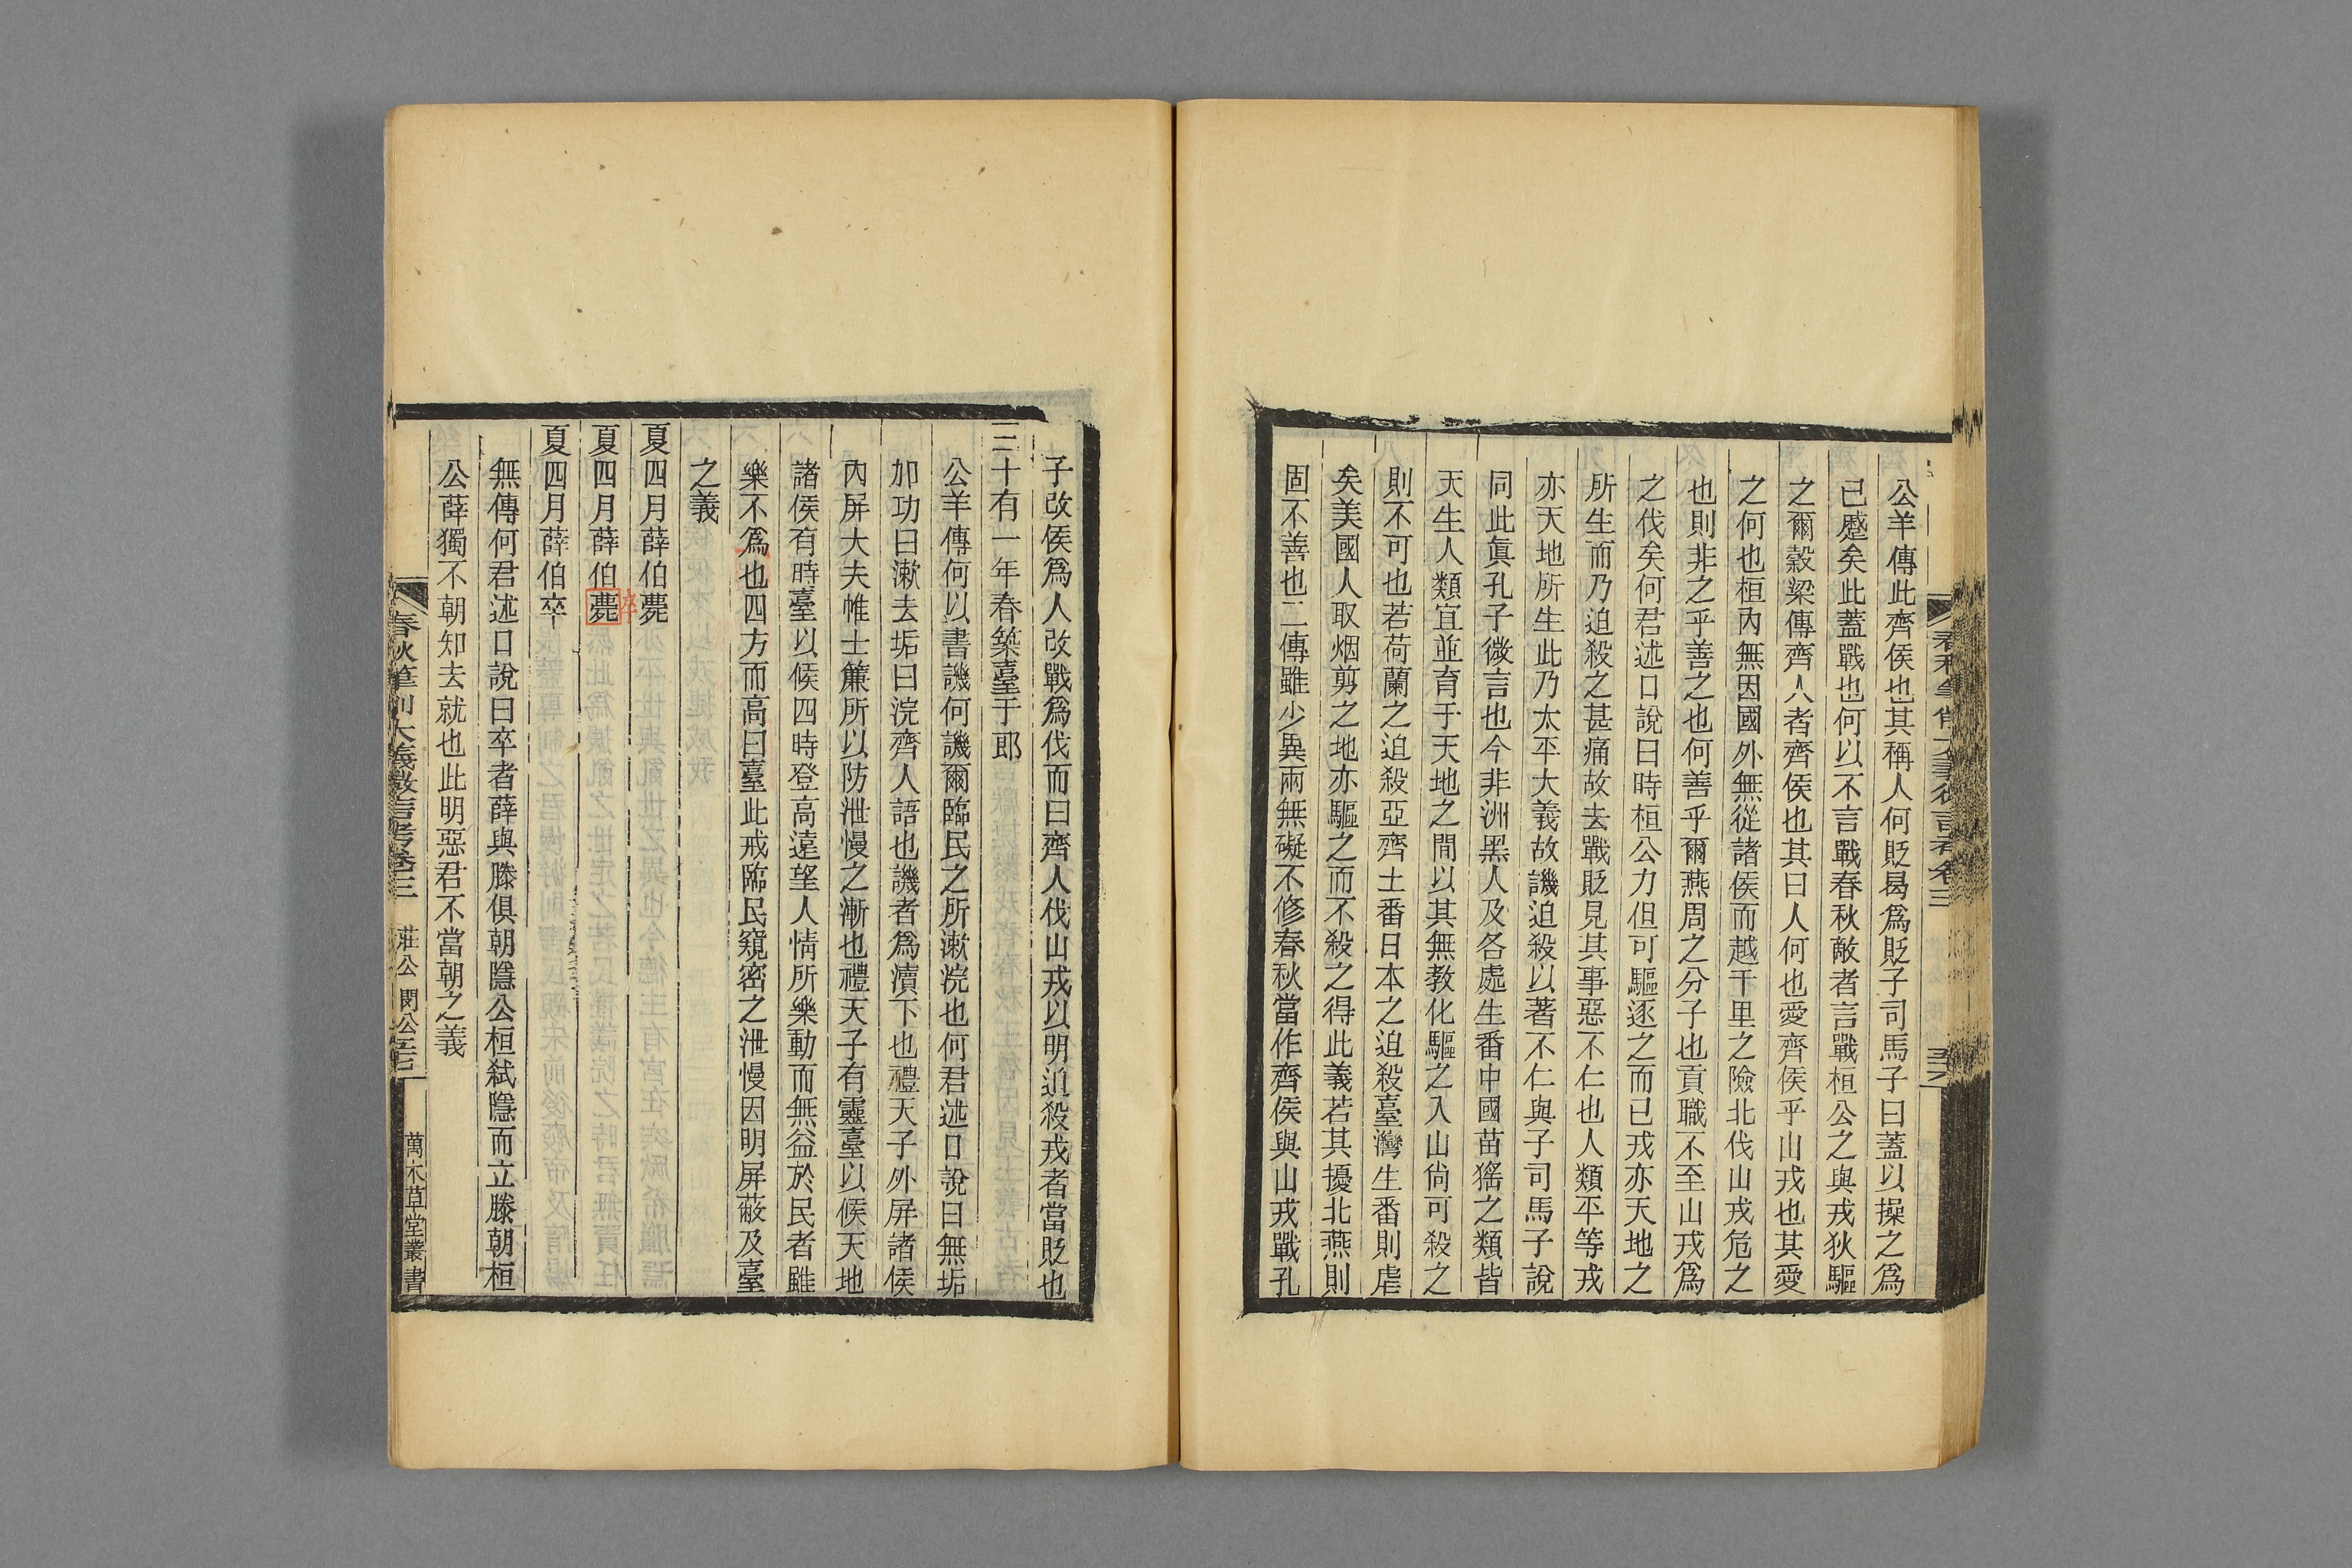 公羊傳此齊侯也其稱人何貶曷爲貶子司馬子曰蓋以操之爲
已蹙矣此蓋戰也何以不言戰春秋敵者言戰桓公之與戎狄驅
之爾穀梁傳齊人者齊侯也其曰人何也愛齊侯乎山戎也其愛
之何也桓內無因國外無從諸侯而越千里之險北伐山戎危之
也則非之乎善之也何善乎爾燕周之分子也貢職不至山戎爲
之伐矣何君述口說曰時桓公力但可驅逐之而已戎亦天地之
所生而乃迫殺之甚痛故去戰貶見其事惡不仁也人類平等戎
亦天地所生此乃太平大義故譏迫殺以著不仁與子司馬子說
同此眞孔子微言也今非洲黑人及各處生番中國苗猺之類皆
天生人類宜並育于天地之間以其無教化驅之入山尙可殺之
則不可也若荷蘭之迫殺亞齊土番日本之迫殺臺灣生番則虐
矣美國人取烟剪之地亦驅之而不殺之得此義若其擾北燕則
固不善也二傳雖少異兩無礙不修春秋當作齊侯與山戎戰孔
子改侯爲人改戰爲伐而曰齊人伐山戎以明迫殺戎者當貶也
三十有一年春築臺于郎
公羊傳何以書譏何譏爾臨民之所漱浣也何君述口說曰無垢
加功曰漱去垢曰浣齊人語也譏者爲瀆下也禮天子外屏諸侯
內屏大夫帷士簾所以防泄慢之漸也禮天子有靈臺以候天地
諸侯有時臺以候四時登高遠望人情所樂動而無益於民者雖
樂不爲也四方而高曰臺此戒臨民窺密之泄慢因明屏蔽及臺
之義
夏四月薛伯薨
夏四月薛伯薨卒
夏四月薛伯卒
無傳何君述口說曰卒者薛與滕俱朝隱公桓弒隱而立滕朝桓
公薛獨不朝知去就也此明惡君不當朝之義
春秋筆削大義微言考卷三 莊公 閔公
萬木草堂叢書